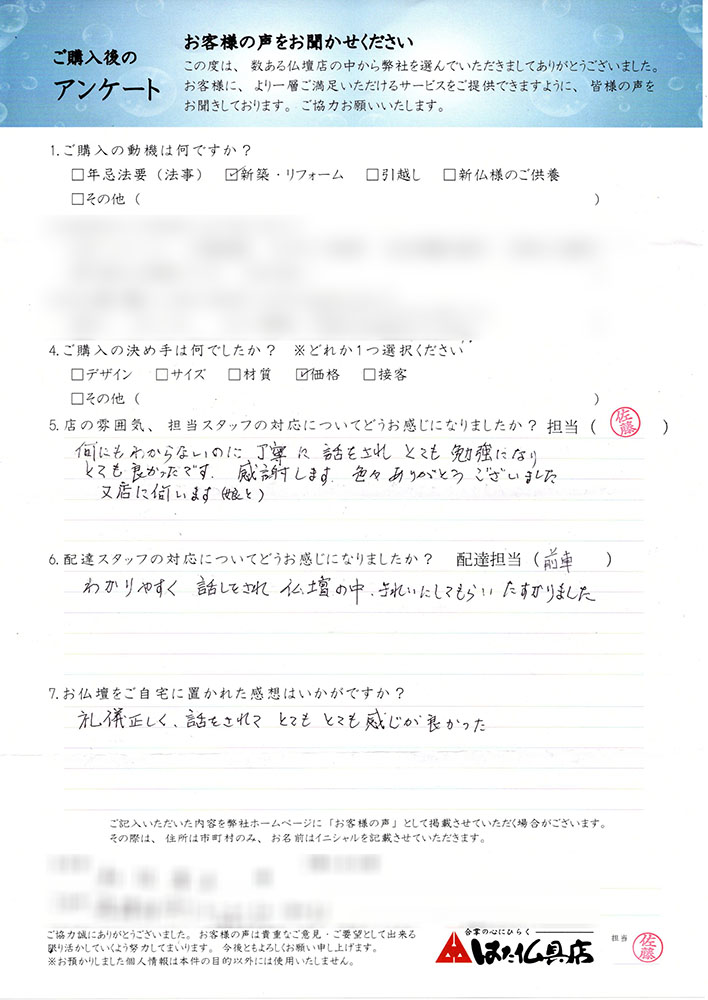 ご購入後の
アンケート
お客様の声をお聞かせください
この度は、数ある仏壇店の中から弊社を選んでいただきましてありがとうございました。
お客様に、より一層ご満足いただけるサービスをご提供できますように、皆様の声を
お聞きしております。ご協力お願いいたします。
1.ご購入の動機は何ですか？
□年忌法要（法事） ☑新築・リフォーム □引越し □新仏様のご供養
□その他（ ）
4.ご購入の決め手は何でしたか？ ※どれか1つ選択ください
□デザイン □サイズ □材質 ☑価格 □接客
□その他（ ）
5.店の雰囲気、担当スタッフの対応についてどうお感じになりましたか？ 担当（ 佐藤 ）
何にもわからないのに 丁寧に 話をされ とても 勉強になり
とても 良かったです。 感謝します。 色々 ありがとう ございました
又店に伺います(娘と)
6.配達スタッフの対応についてどうお感じになりましたか？ 配達担当（ 前車 ）
わかりやすく 話しをされ 仏壇の中、きれいにしてもらい たすかりました
7.お仏壇をご自宅に置かれた感想はいかがですか？
礼儀正しく、話をされて とても とても 感じが 良かった
ご記入いただいた内容を弊社ホームページに「お客様の声」として掲載させていただく場合がございます。
その際は、住所は市町村のみ、お名前はイニシャルを記載させていただきます。
ご協力誠にありがとうございました。お客様の声は貴重なご意見・ご要望として出来る
限り活かしていくよう努力してまいります。今後ともよろしくお願い申し上げます。
※お預かりしました個人情報は本件の目的以外には使用いたしません。
合掌の心にひらく
はた仏具店
担当 佐藤